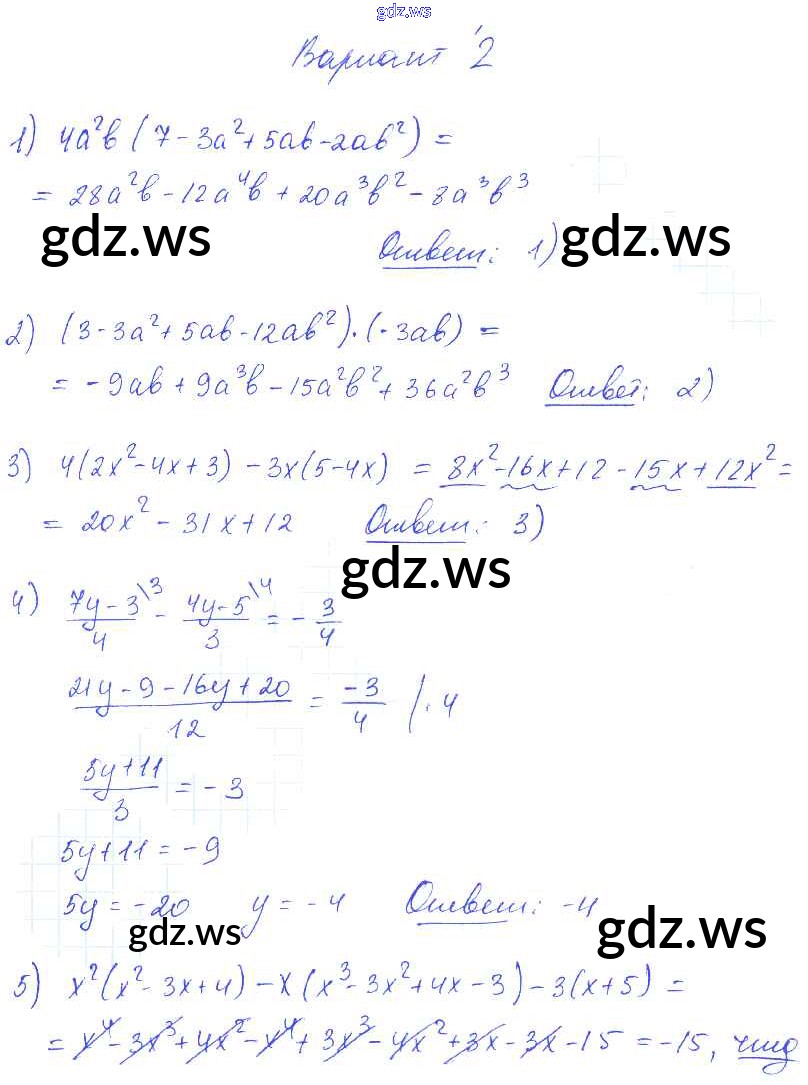 gdz.ws
Вариант 2
1) 4a²b (7 - 3a² + 5ab - 2ab²) =
= 28a²b - 12a⁴b + 20a³b² - 8a³b³
gdz.ws Ответ: 1) gdz.ws
2) (3 - 3a² + 5ab - 12ab²)·(-3ab) =
= -9ab + 9a³b - 15a²b² + 36a²b³ Ответ: 2)
3) 4(2x² - 4x + 3) - 3x(5 - 4x) = 8x² - 16x + 12 - 15x + 12x² =
= 20x² - 31x + 12 Ответ: 3)
gdz.ws
4) (7y - 3)/4 \3 - (4y - 5)/3 \4 = - 3/4
(21y - 9 - 16y + 20)/12 = -3/4 |· 4
(5y + 11)/3 = - 3
5y + 11 = - 9
5y = - 20 y = - 4 Ответ: -4
gdz.ws gdz.ws
5) x²(x² - 3x + 4) - x(x³ - 3x² + 4x - 3) - 3(x + 5) =
= x⁴ - 3x³ + 4x² - x⁴ + 3x³ - 4x² + 3x - 3x - 15 = -15, чтд